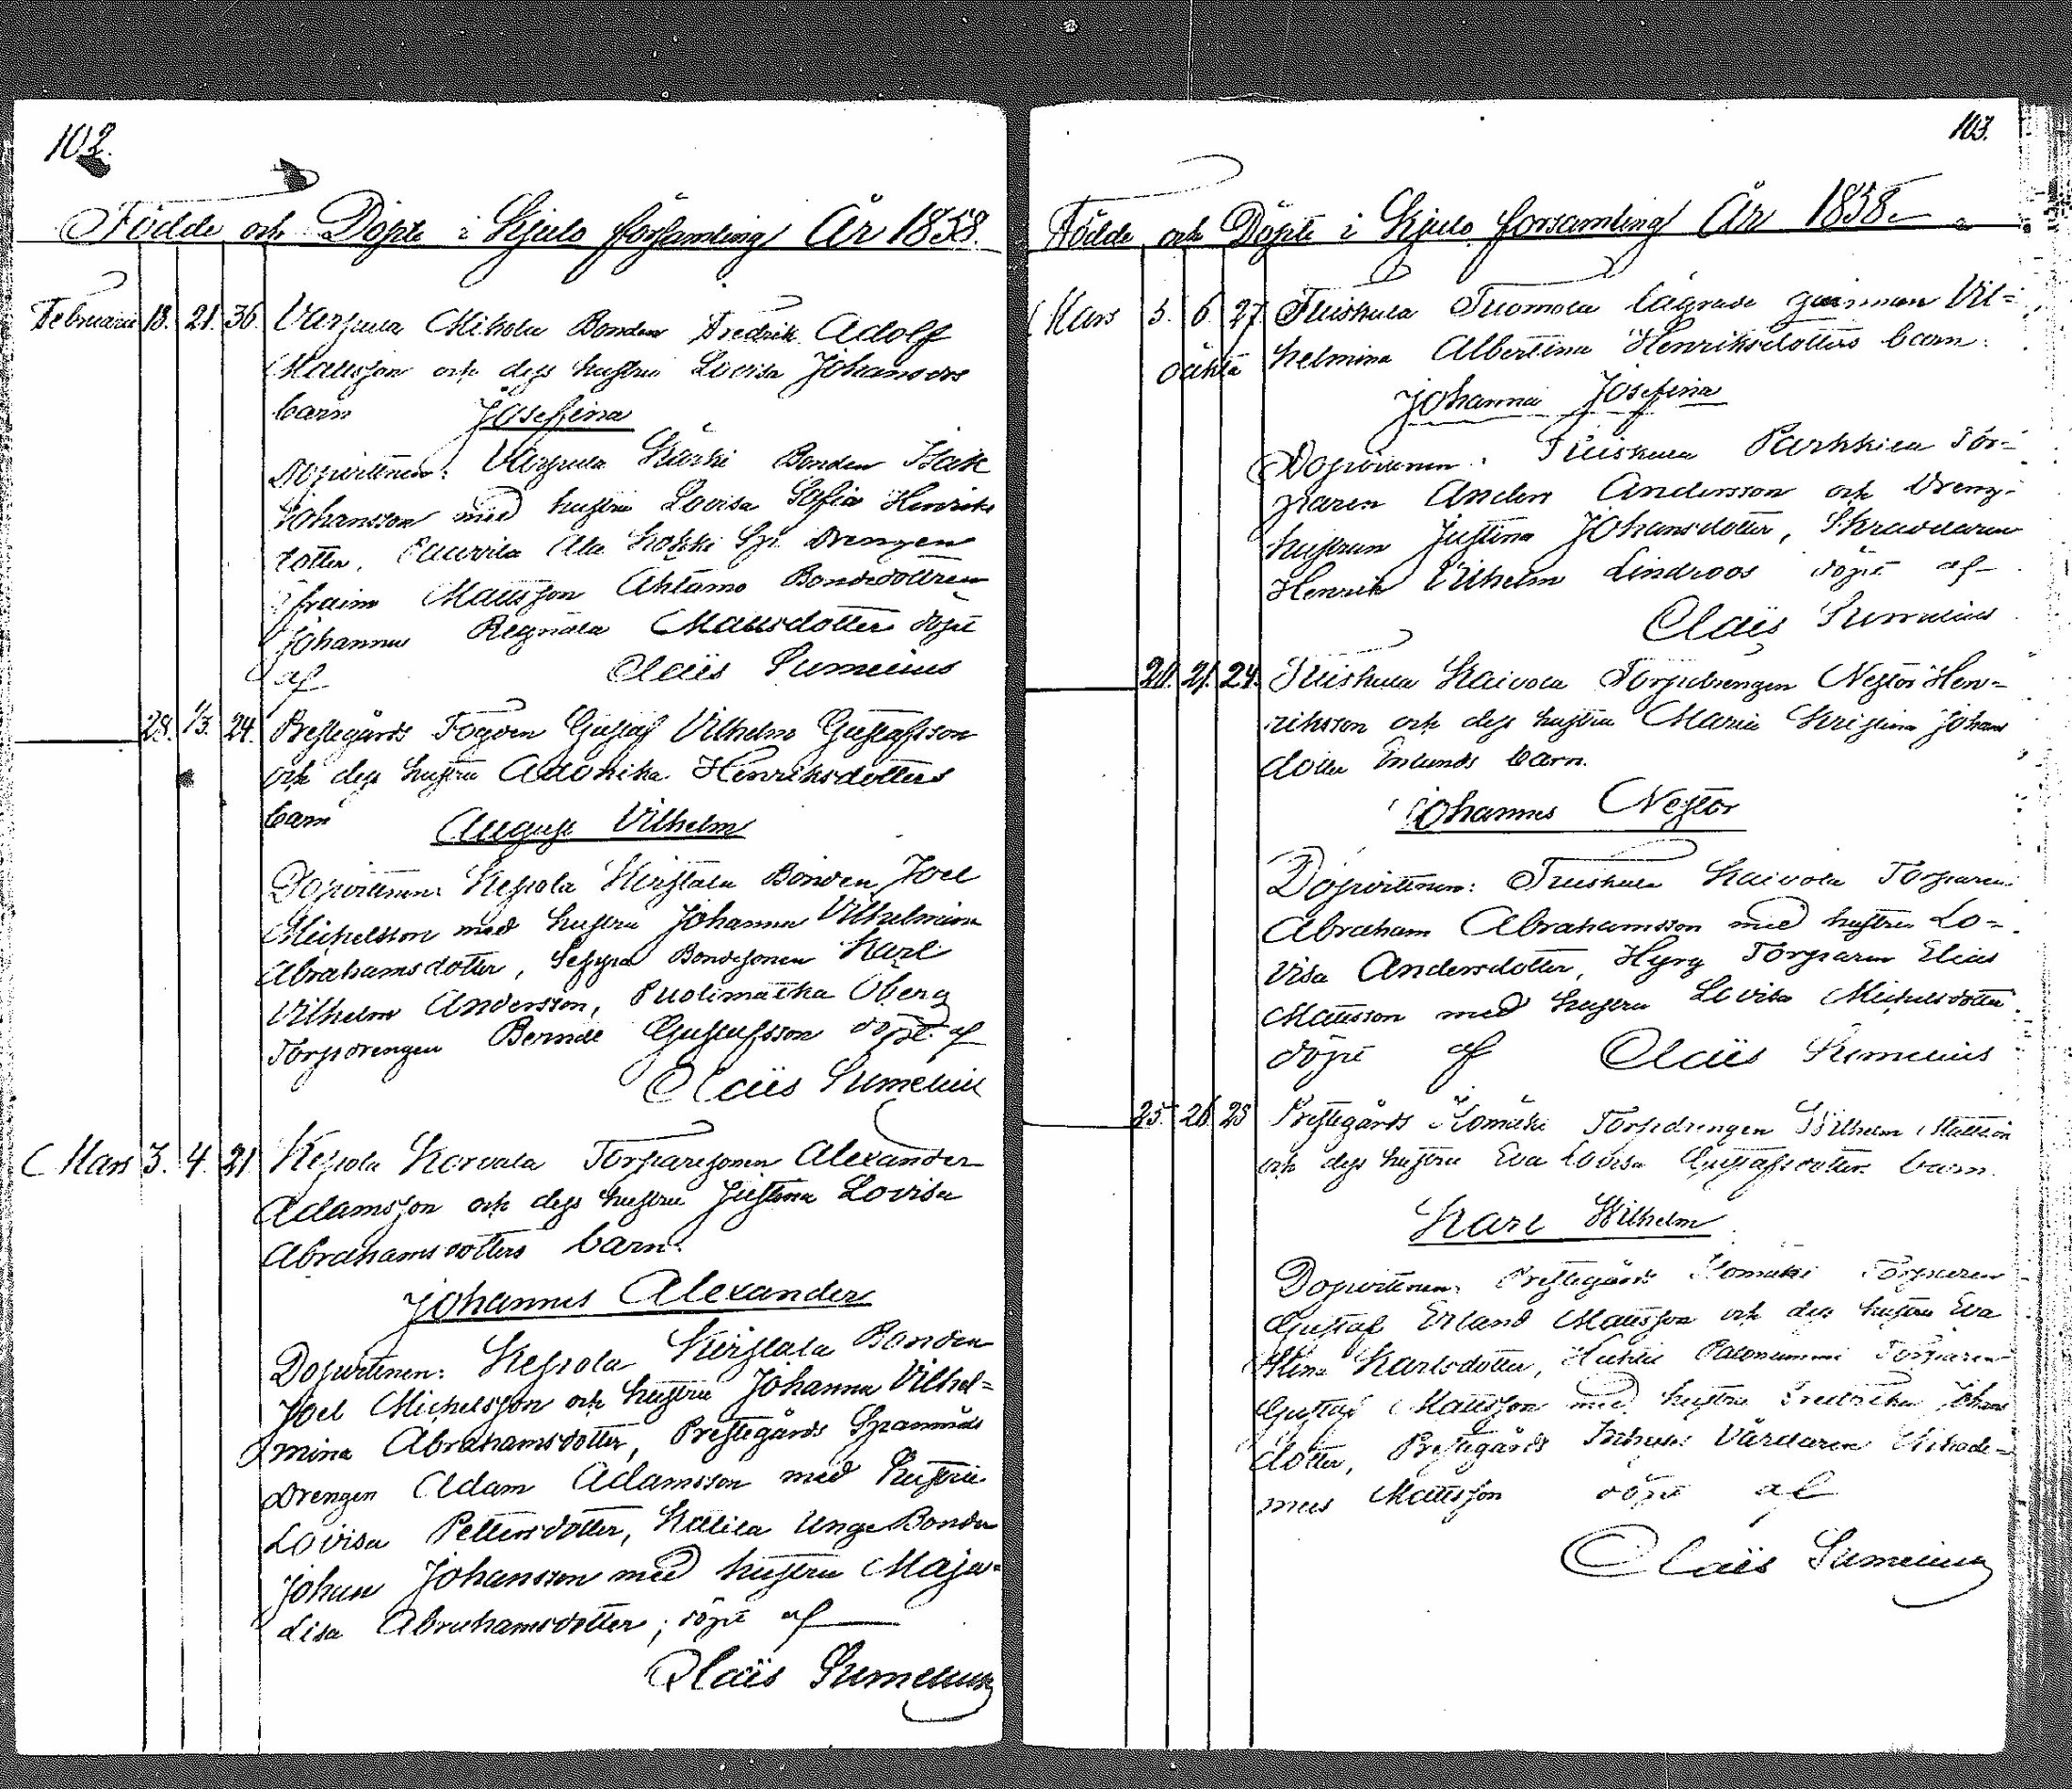 102.
Födde och Döpte i Kjulo församling År 1858.
Februari 18. 21. 36. Mikola Bonden Fredrik Adolf
Mattsson och dess hustru Lovisa Johansdrs
barn Josefina
Dopvittnen: Bonden Isak
Johansson med hustru Lovisa Sofia Henriks
dotter, Ala Drengen
Mattsson Ahtamo Bondedottren
Johanna Reginala Mattsdotter döpt
af Claës Sumelius
28. 1/3. 24. Prestegårds Fogden Gustaf Vilhelm Gustafsson
och dess hustru Henriksdotters
barn August Vilhelm
Dopvittnen: Kepola Kirstala Bonden Joel
Michelsson med hustru Johanna Vilhelmina
Abrahamsdotter, Bondesonen Karl
Vilhelm Andersson, Puolimatka Öberg
Torpdrengen Gustafsson döpt af
Claës Sumelius
Mars 3. 4. 21 Kepola Korvala Torparesonen Alexander
Adamsson och dess hustru Justina Lovisa
Abrahamsdotters barn.
Johannes Alexander
Dopvittnen: Kepola Kirstala Bonden
Joel Michelsson och hustru Johanna Vilhel=
mina Abrahamsdotter, Prestegårds
Drengen Adam Adamsson med hustru
Lovisa Pettersdotter, Unge Bonden
Johan Johansson med hustru Maja
Lisa Abrahamsdotter; döpt af
Claës Sumelius
103.
Födde och Döpte i Kjulo församling År 1858.
Mars 5. 6. 27. Tuiskula Tuomola lägrade qvinnan Vil=
oäkta helmina Albertina Henriksdotters barn.
Johanna Josefina
Dopvittnen: Tuiskula Parkkila Tor=
paren Anders Andersson och Dreng-
hustrun Justina Johansdotter, Skraddaren
Henrik Vilhelm Lindroos döpt af
Claës Sumelius
20. 21. 24. Tuiskula Kaivola Torpdrengen Nestor Hen=
riksson och dess hustru Maria Kristina Johans
dotter barn.
Johannes Nestor
Dopvittnen: Tuiskula Kaivola Torparen
Abraham Abrahamsson med hustru Lo=
visa Andersdotter, Torparen Elias
Mattsson med hustru Lovisa Michelsdotter
döpt af Claës Sumelius
25. 26. 25 Prestegårds Torpdrengen Wilhelm Mattsson
och dess hustru Eva Lovisa Gustafsdotters barn.
Karl Wilhelm
Dopvittnen: Prestegårds Torparen
Gustaf Erland Mattsson och dess hustru Eva
Stina Karlsdotter, Torparen
Gustaf Mattsson med hustru Fredrika Johans
dotter, Prestegårds Vårdaren
Mattsson döpt af
Claës Sumelius